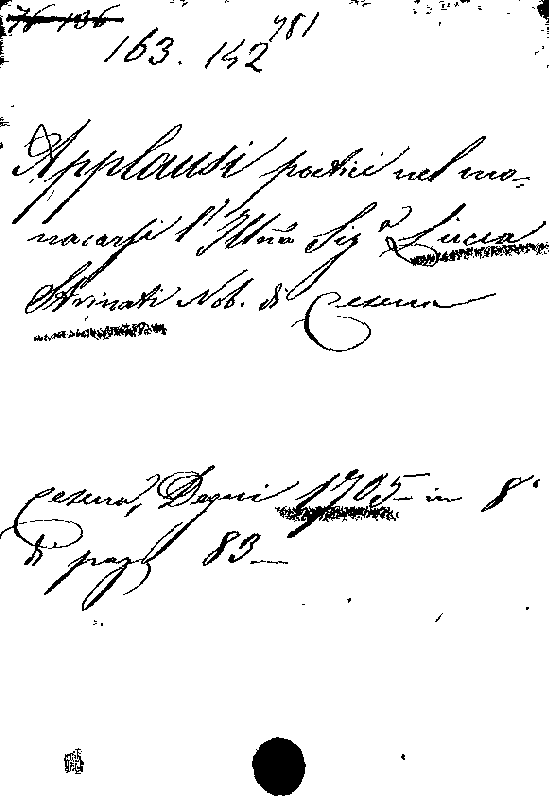 76 136
781
163. 142
Applausi poetici nel mo-
nacarsi l'Illma Sig.a Lucia
Strinati Nob. di Cesena
Cesena, Degni 1705 in 8°
di pag. 83